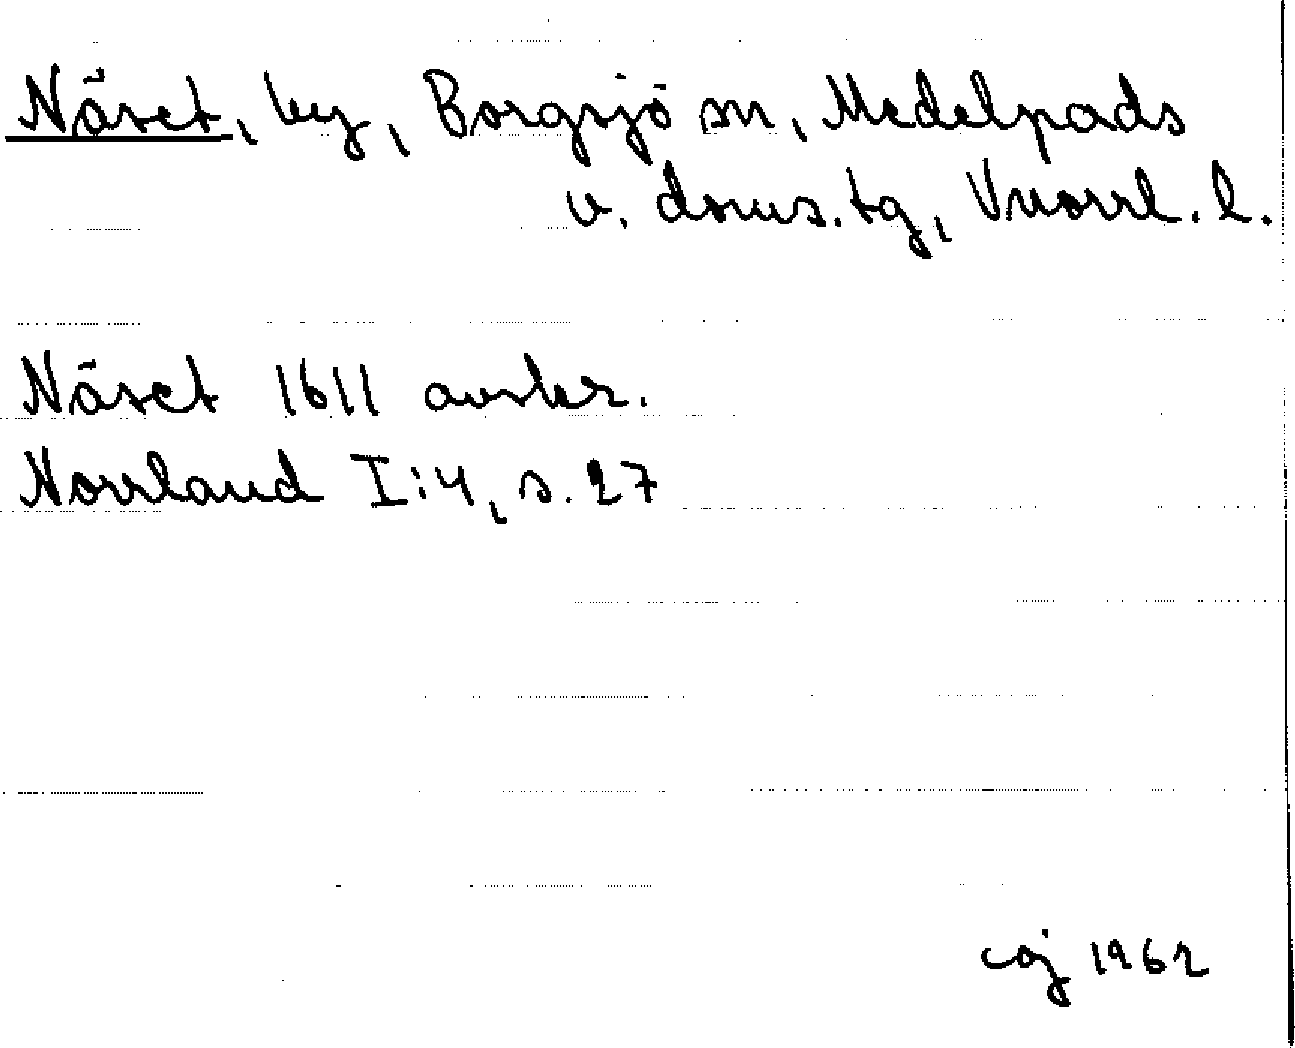 Näset, by, Borgsjö sn, Medelpads
v. doms.tg, Vnorrl. l.
Näset 1611 avskr.
Norrland I:4, s. 27
caj 1962